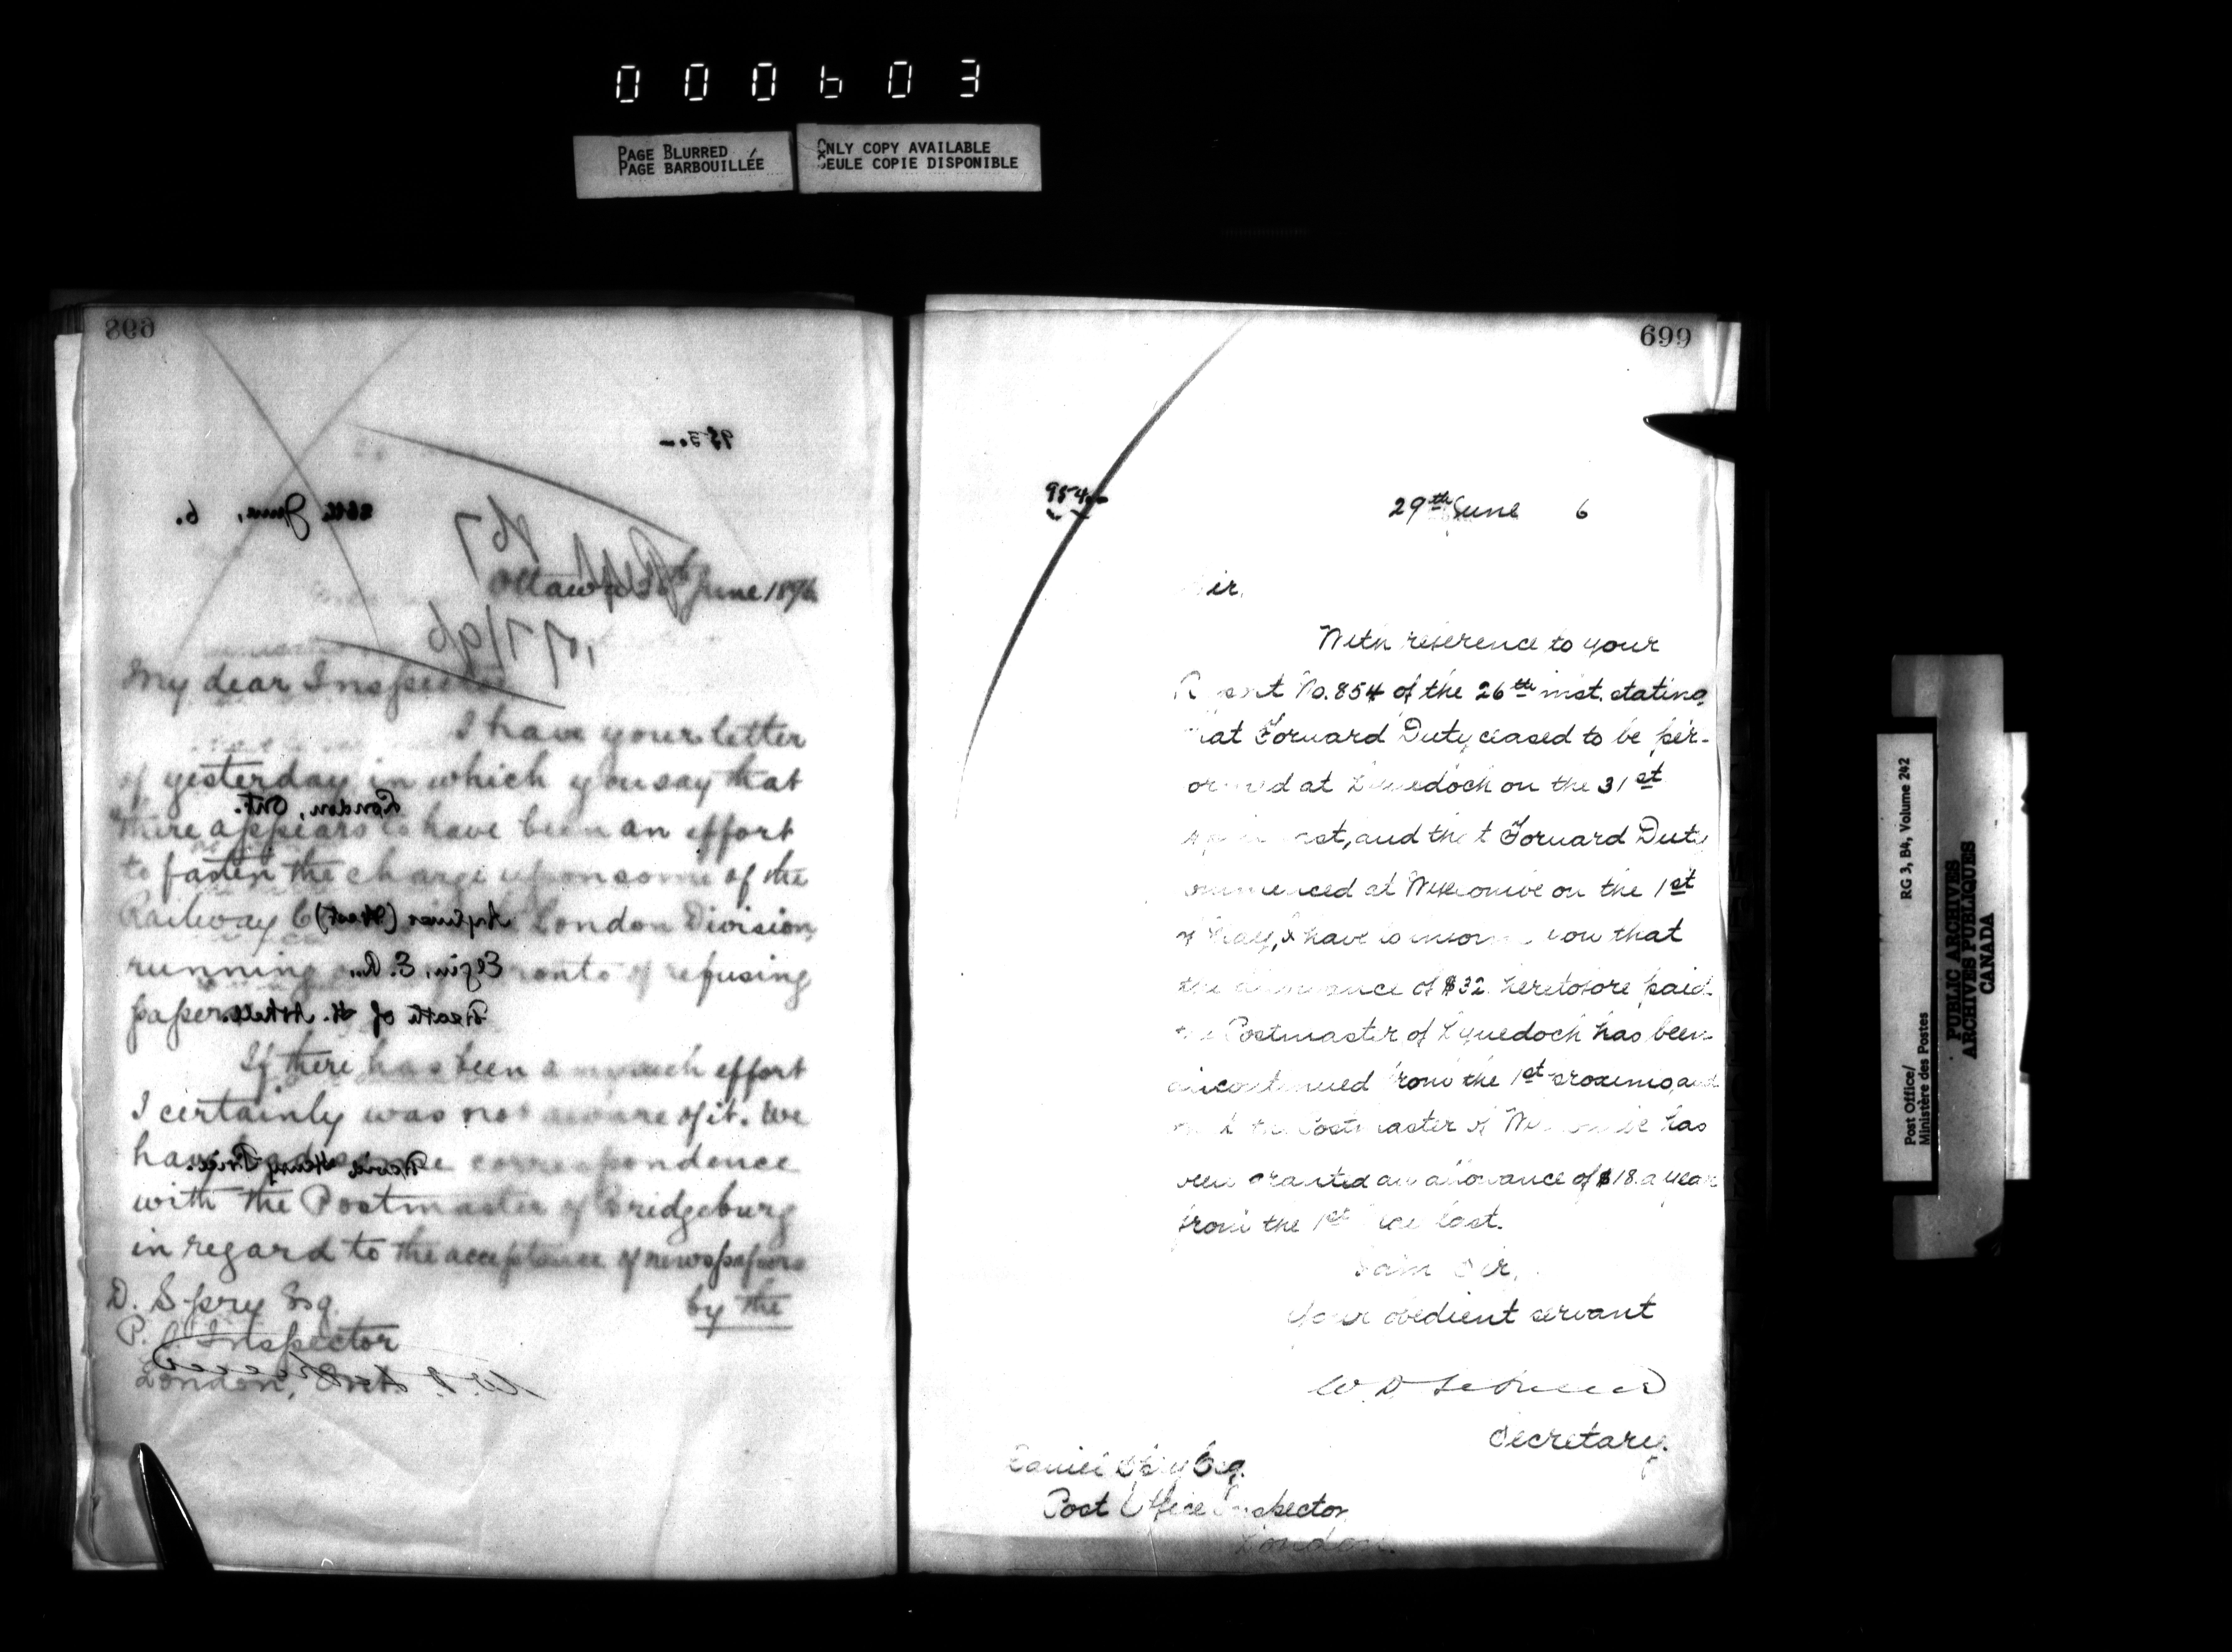 000603
PAGE BLURRED
PAGE BARBOUILLÉE
ONLY COPY AVAILABLE
SEULE COPIE DISPONIBLE
698
953.
26th June, 6.
Ottawa June 1896
My dear Inspector
I have your letter
of yesterday in which you say that
there appears to have been an effort
London, Ont.
to fasten the charge upon some of the
Railway London Division
Aylmer (West)
running of refusing
Elgin, E. R.
papers
Death of
If there has been any such effort
I certainly was not aware of it. We
have some correspondence
David Henry Price.
with the Postmaster of Bridgeburg
in regard to the acceptance of newspapers
by the
D. Spry Esq.
P. O. Inspector
London, Ont.
699
954
29th June 6
Sir,
With reference to your
Report No. 854 of the 26th inst. stating
that Forward Duty ceased to be per-
formed at Lynedoch on the 31st
last, and that Forward Duty
commenced at on the 1st
of May, I have to inform you that
the allowance of $32. heretofore paid
the Postmaster of Lynedoch has been
discontinued from the 1st proximo, and
the Postmaster of has
been granted an allowance of $18. a year
from the 1st last.
I am Sir,
Your obedient servant
W. D. LeSueur
Secretary.
Daniel Spry Esq.
Post Office Inspector
London.
Post Office/
Ministère des Postes
RG 3, B4, Volume 242
PUBLIC ARCHIVES
ARCHIVES PUBLIQUES
CANADA